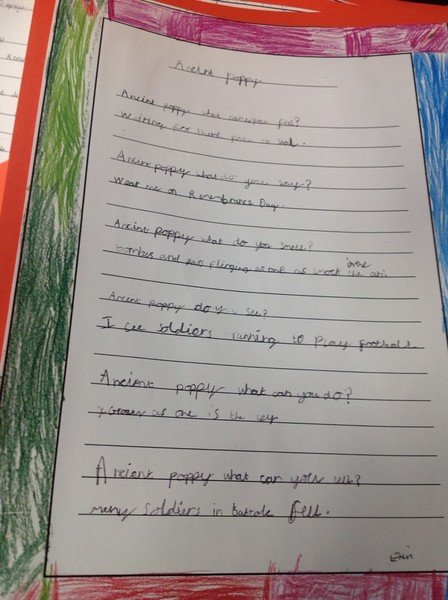 Ancint poppy
Ancint poppy what can you feel?
Waiting for
Ancint poppy what do you say?
Wear me on Remembrance Day.
Ancint poppy what do you smell?
bombs and gas flinging as one as smock in the air.
Ancint poppy do you see?
I see soldiers running to play football
Ancient poppy what can you do?
Grow as one is the key
Ancient poppy what can you tell?
many soldiers in Battale fell.
Erin